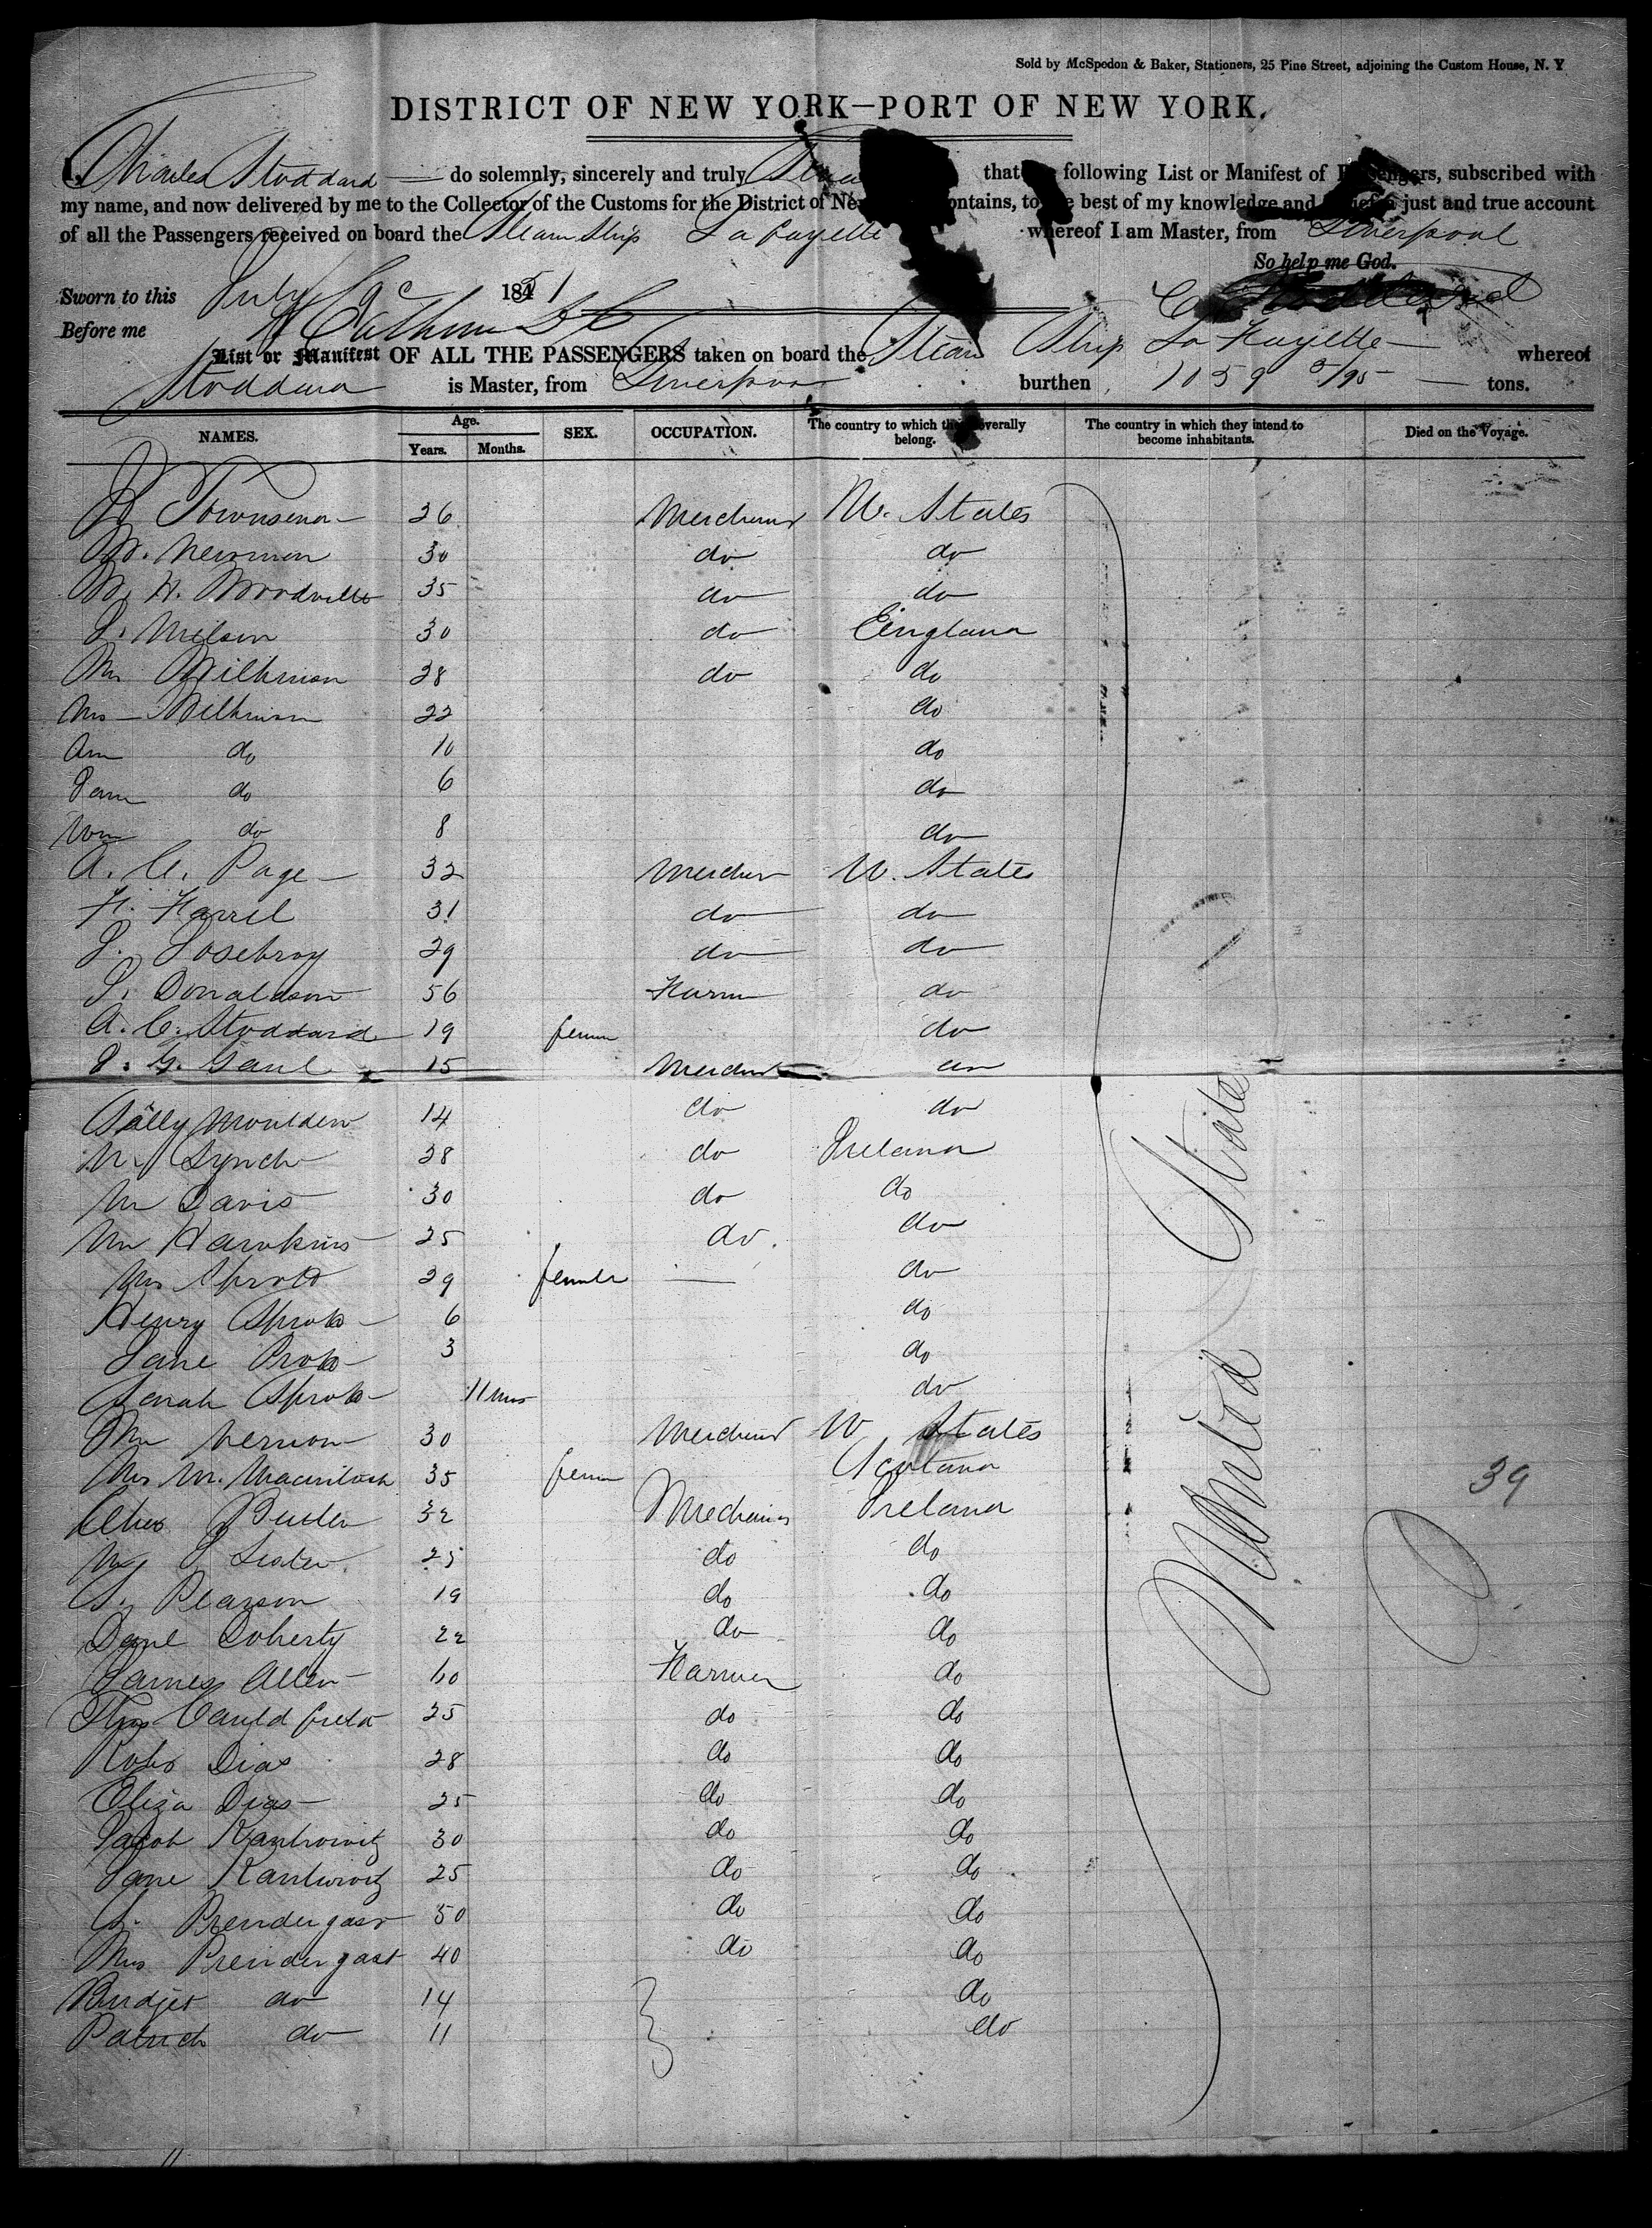 Sold by McSpedon & Baker, Stationers, 25 Pine Street, adjoining the Custom House, N. Y
DISTRICT OF NEW YORK—PORT OF NEW YORK.
I, Charles Stoddard do solemnly, sincerely and truly that following List or Manifest of Passengers, subscribed with
my name, and now delivered by me to the Collector of the Customs for the District of New ontains, to best of my knowledge and just and true account
of all the Passengers received on board the Steam Ship La Fayette whereof I am Master, from Liverpool
So help me God.
Sworn to this July 1851
Before me
List or Manifest OF ALL THE PASSENGERS taken on board the Steam Ship La Fayette whereof
Stoddard is Master, from Liverpool burthen 1059 5/95 tons.
NAMES. Age. Years. Months. SEX. OCCUPATION. The country to which they severally belong. The country in which they intend to become inhabitants. Died on the Voyage.
Townsend 26 Merchant U. States
W. Newman 30 do do
W. H. Woodville 35 do do
30 do England
Mr Wilkinson 38 do do
Mrs Wilkinson 22 do
Ann do 10 do
do 6 do
Wm do 8 do
A. C. Page 32 Merchan U. States
F. Harrel 31 do do
29 do do
Donaldson 56 Farm do
A. C. Stoddard 19 fem do
15 Merchant do
Sally Moulden 14 do do
Lynch 28 do Ireland
Mr Davis 30 do do
Mr Hawkins 25 do do
Mrs Sprott 29 female — do
Henry Sprott 6 do
Jane Prott 3 do
Sarah Sprott 11 mos do
Mr Vernon 30 Merchant U States
Mrs M. Macintosh 35 fem Scotland
Butler 32 Mechanic Ireland
25 do do
S. Pearson 19 do do
Danl Doherty 22 do do
James Allen 60 Farmer do
Thos Cauldfield 25 do do
Robt Dias 28 do do
Eliza Dias 25 do do
Jacob Kantrowitz 30 do do
Jane Kantrowitz 25 do do
Prendergast 50 do do
Mrs Prendergast 40 do do
Bridget do 14 do
Patrick do 11 do
United States
39